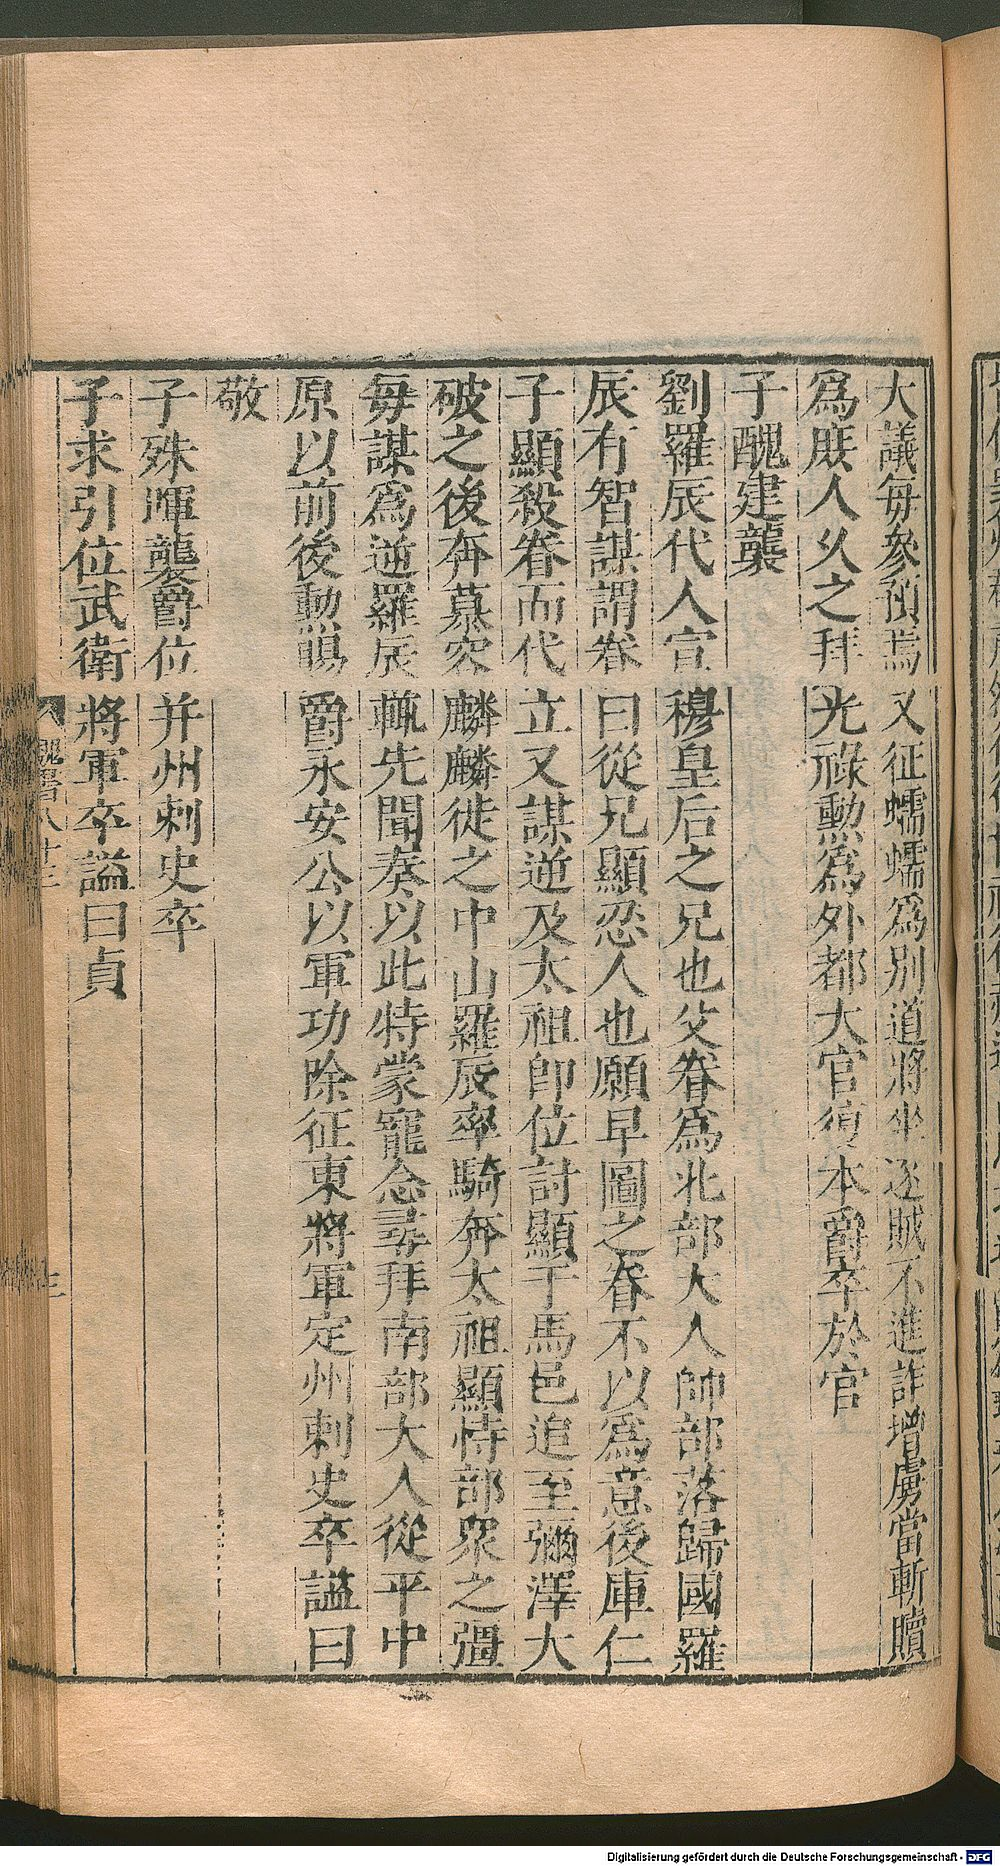 大議每參預焉又征蠕蠕為別道將坐逐賊不進詐增虜當斬贖
爲庶人久之拜光祿勳爲外都大官復本爵卒於官
子醜建襲
劉羅辰代人宣穆皇后之兄也父眷爲北部大人帥部落歸國羅
辰有智謀謂眷曰從兄顯忍人也願早圖之眷不以爲意後庫仁
子顯殺眷而代立又謀逆及太祖即位討顯于馬邑追至彌澤大
破之後奔慕容麟麟徙之中山羅辰率騎奔太祖顯恃部眾之彊
每謀爲逆羅辰輒先聞奏以此特蒙寵念尋拜南部大人從平中
原以前後勲賜爵永安公以軍功除征東將軍定州刺史卒謚曰
敬
子殊暉襲爵位并州刺史卒
子求引位武衛將軍卒謚曰貞
魏書八十三
三
Digitalisierung gefördert durch die Deutsche Forschungsgemeinschaft - DFG